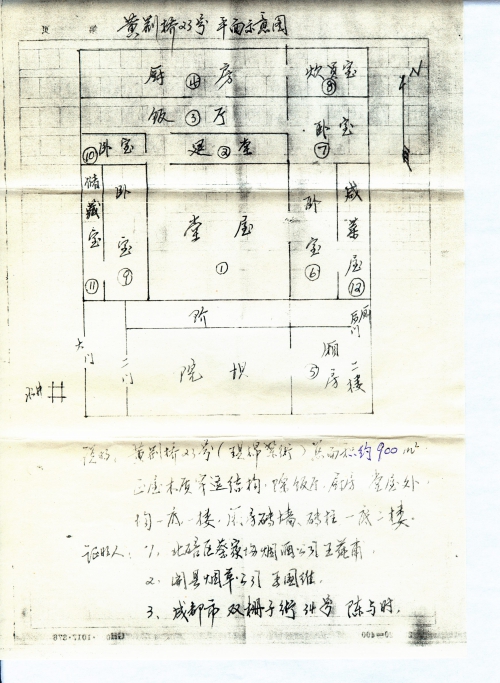 黄荆桥23号平面示意图
N
厨④房
炊员室⑧
饭③厅
卧室⑦
⑩卧室
②堂
储藏室⑪
卧室⑨
堂屋①
卧室⑥
咸菜屋⑫
阶
大门
二门
院坝
厢房⑤
二楼
水井
说明：黄荆桥23号(现 街)总面积约900m²
木质 结构，除饭厅、厨房、堂屋外，
均一底一楼。 砖墙、砖柱一底二楼。
证明人：1、北碚区蔡家场烟酒公司王
2、 县烟草公司王国维。
3、成都市双栅子街34号陈与时。
20=400